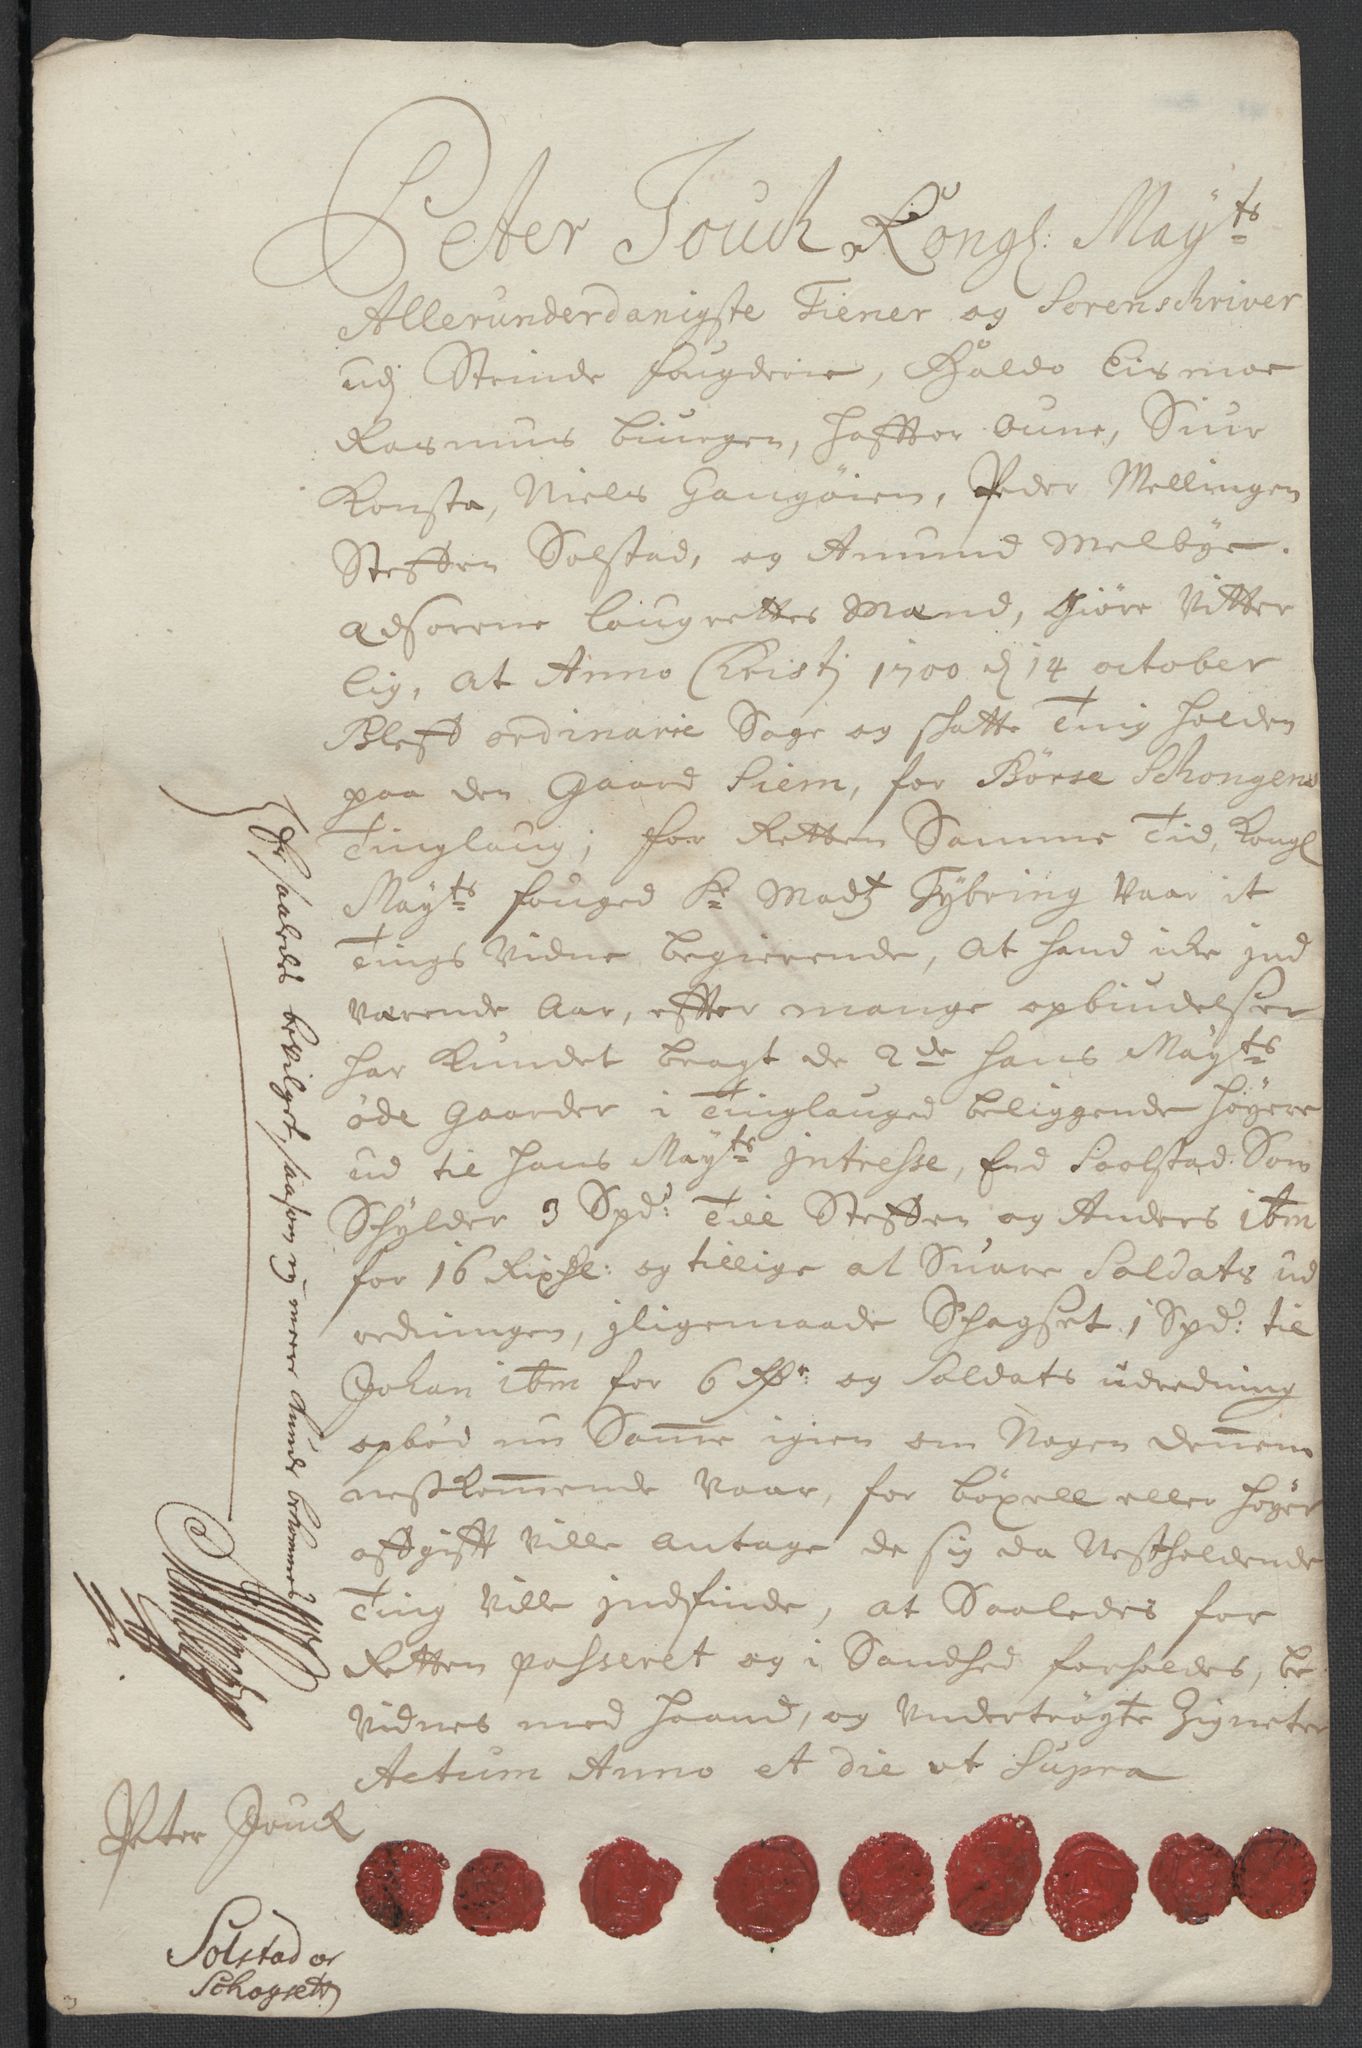 Peter Jouch Kongl: Mayts
Allerunderdanigste Tiener og Sorenschriver
udj Strinde fougderie, Baldo Eismoe
Rasmus biurgen, hafftor Oune, Siur
Konsta, Niels Gangøien, Peder Mellingen
Steffen Solstad, og Amund Melbye.
Edsorne laugrettes Mænd, Giøre Vitter
lig, at Anno Christj 1700 d 14 october
Bleff ordinarie Sage og schatte Ting holden
paa den Gaard Siem, for Børse Schongens
Tinglaug, for Retten Samme Tid, Kongl
Mayts fouged Sr Madtz Fybring Vaar it
Tings Vidne begierende, at hand icke jnd
værende Aar, effter mange opbiudelser
har Kundet bragt de 2de hans Mayts
øde Gaarder i Tinglauged beliggende høyere
ud til hans Mayts jntresse, End Soolstad Som
Schylder 3 Spd: Till Steffen og Anders ibm
for 16 Rixdl: og tillige at Suare Soldats ud
redningen, jligemaade Schagset 1 Spd: til
Johan ibm for 6 Rdr: og Soldats udredning
opbød nu Samme igien om Nogen dennem
nestkommende Vaar, for bøxell eller høyer
affgifft Ville antage de sig da Nestholdende
Ting Ville jndfinde, at Saaledes for
Retten passeret og i Sandhed forholdes, be
Vidnes med haand, og Undertrøgte Zigneter
Actum Anno et die ut Supra
Peter Jouch
Er saaledes beVilget, saasom ej meere kunde bekommes
Solstad og
Schogsett